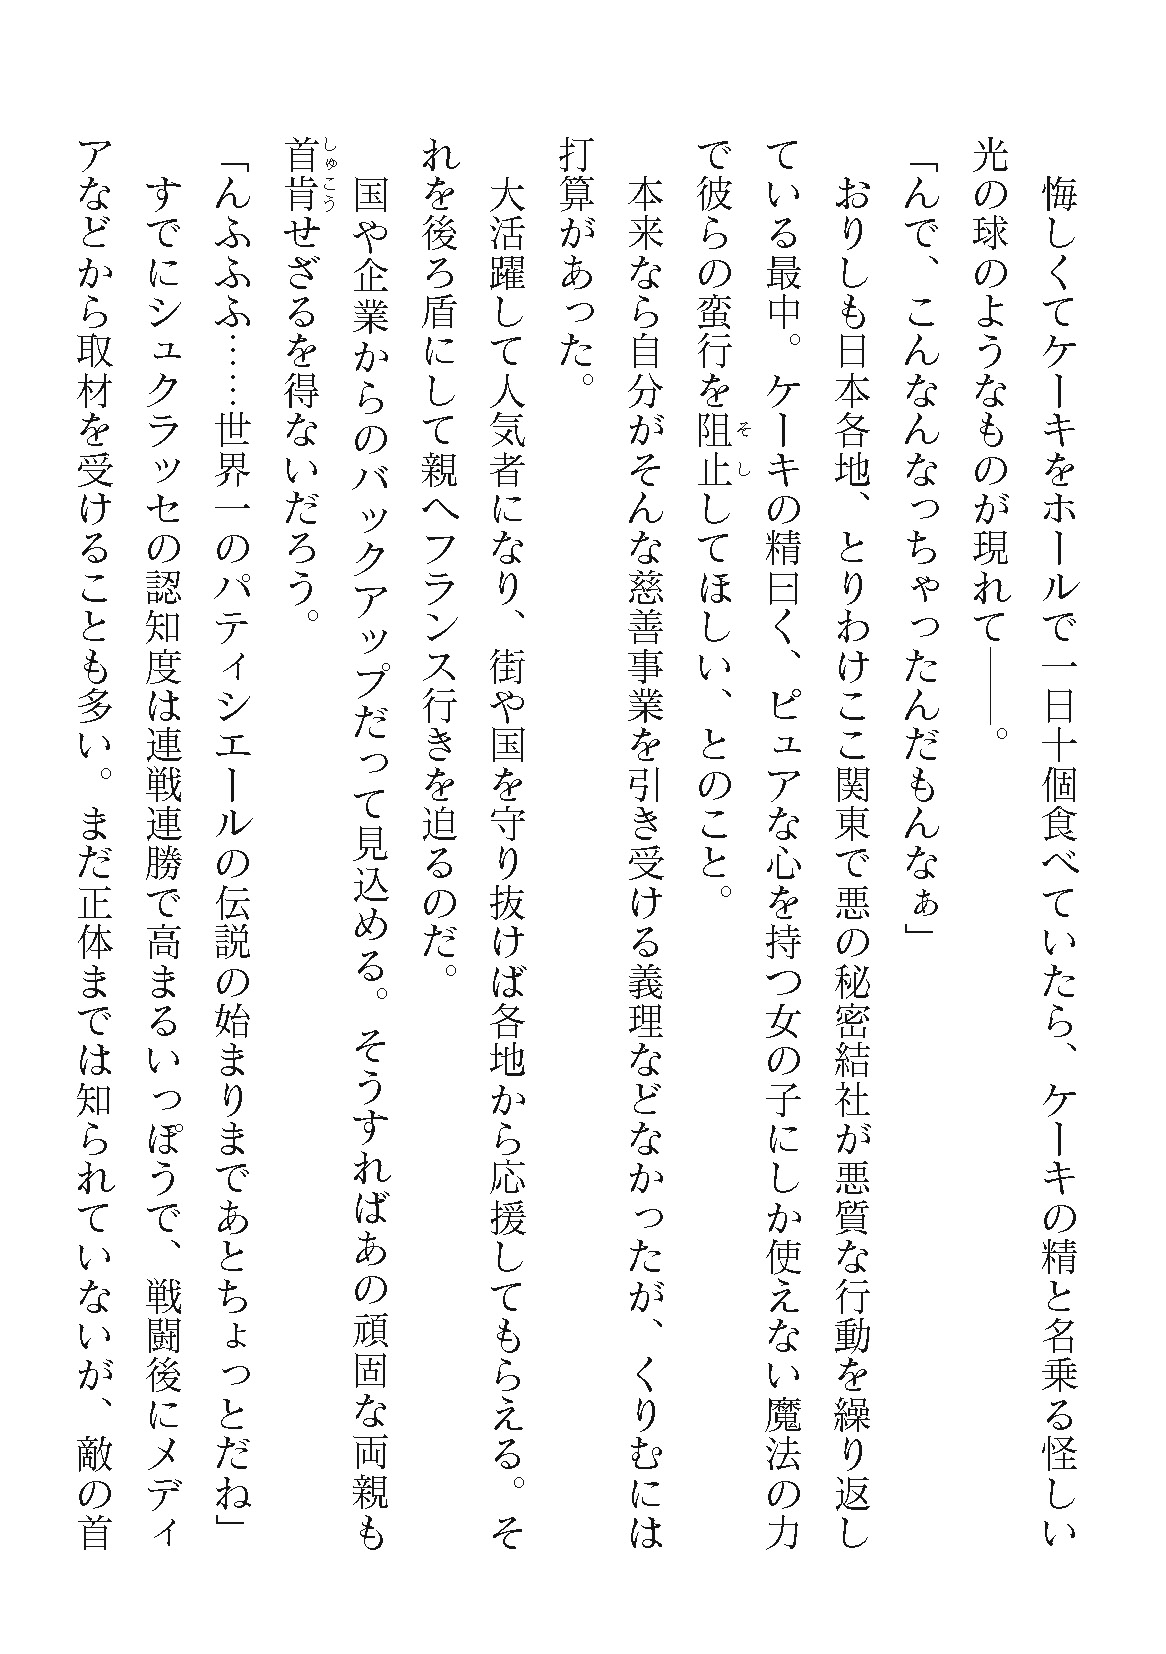 悔しくてケーキをホールで一日十個食べていたら、ケーキの精と名乗る怪しい
光の球のようなものが現れて――。
「んで、こんなんなっちゃったんだもんなぁ」
おりしも日本各地、とりわけここ関東で悪の秘密結社が悪質な行動を繰り返し
ている最中。ケーキの精曰く、ピュアな心を持つ女の子にしか使えない魔法の力
で彼らの蛮行を阻止してほしい、とのこと。
本来なら自分がそんな慈善事業を引き受ける義理などなかったが、くりむには
打算があった。
大活躍して人気者になり、街や国を守り抜けば各地から応援してもらえる。そ
れを後ろ盾にして親へフランス行きを迫るのだ。
国や企業からのバックアップだって見込める。そうすればあの頑固な両親も
首肯せざるを得ないだろう。
「んふふふ……世界一のパティシエールの伝説の始まりまであとちょっとだね」
すでにシュクラッセの認知度は連戦連勝で高まるいっぽうで、戦闘後にメディ
アなどから取材を受けることも多い。まだ正体までは知られていないが、敵の首